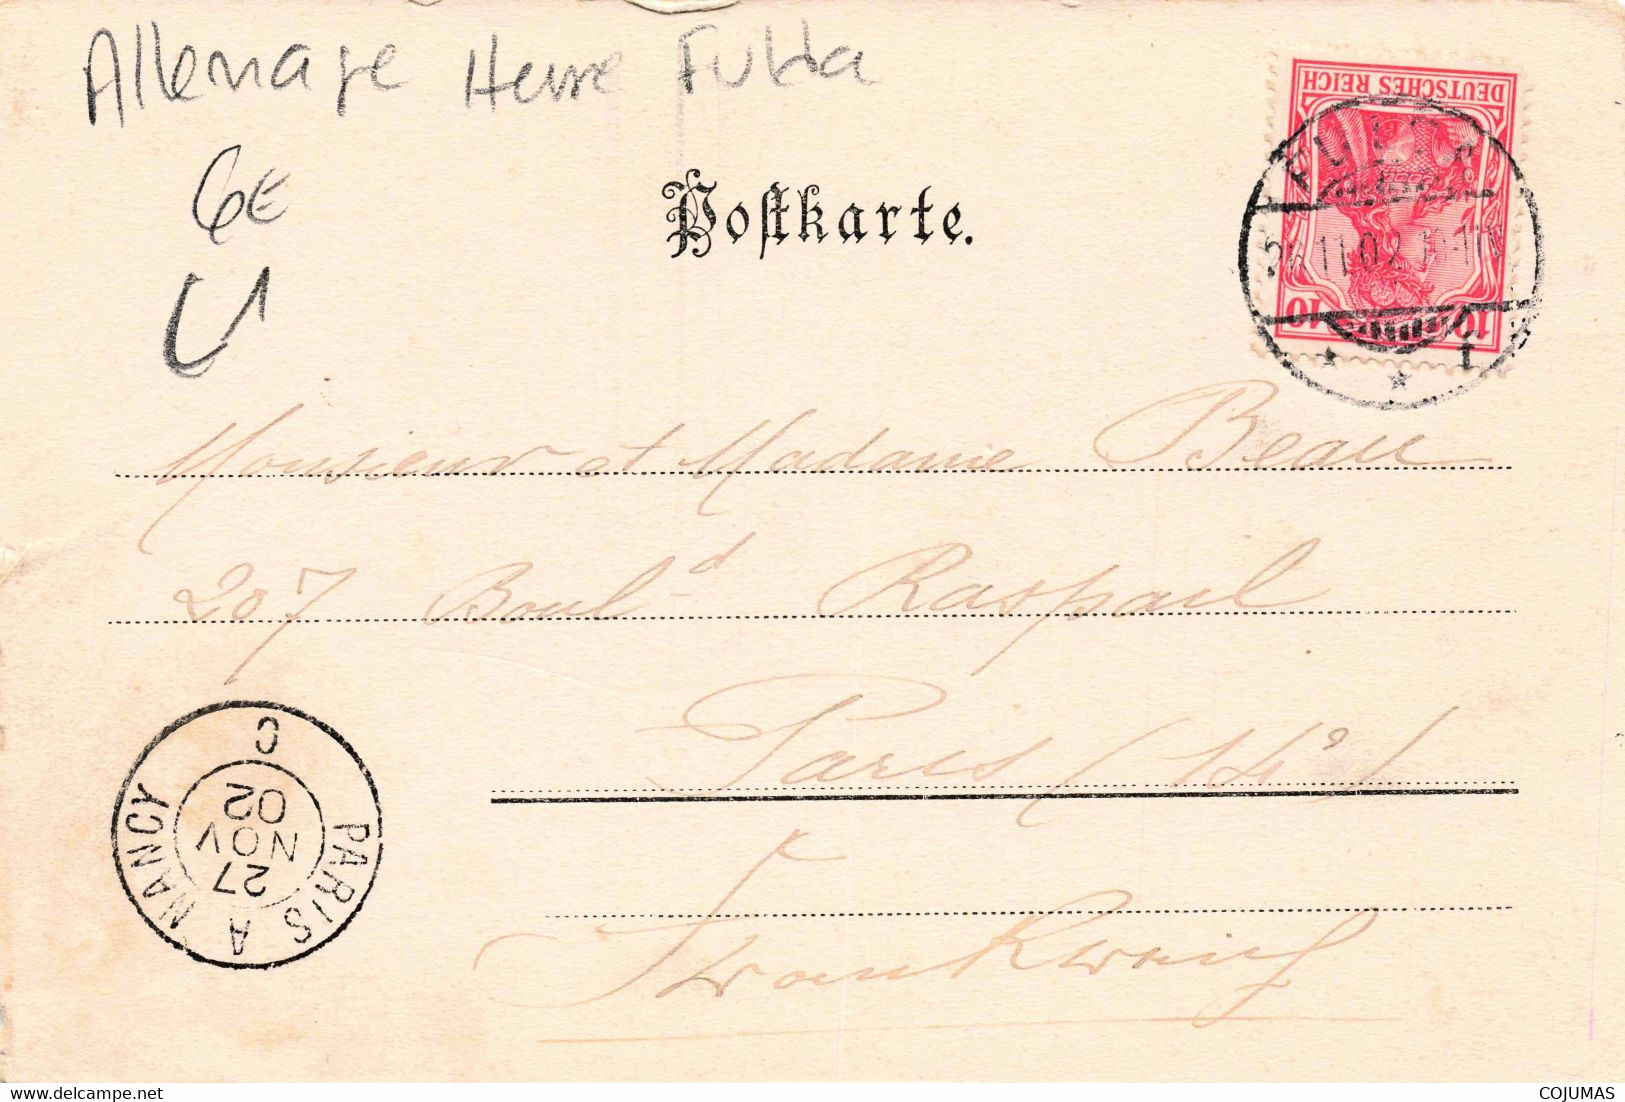 Allemagne Hesse Fulda
6E
Postkarte.
DEUTSCHES REICH
10 10
FULDA
26.11.02
* * 1
Monsieur et Madame Beau
207 Boul.d Raspail
Paris (14e)
Frankreich
PARIS A NANCY
C
27
NOV
02
COJUMAS